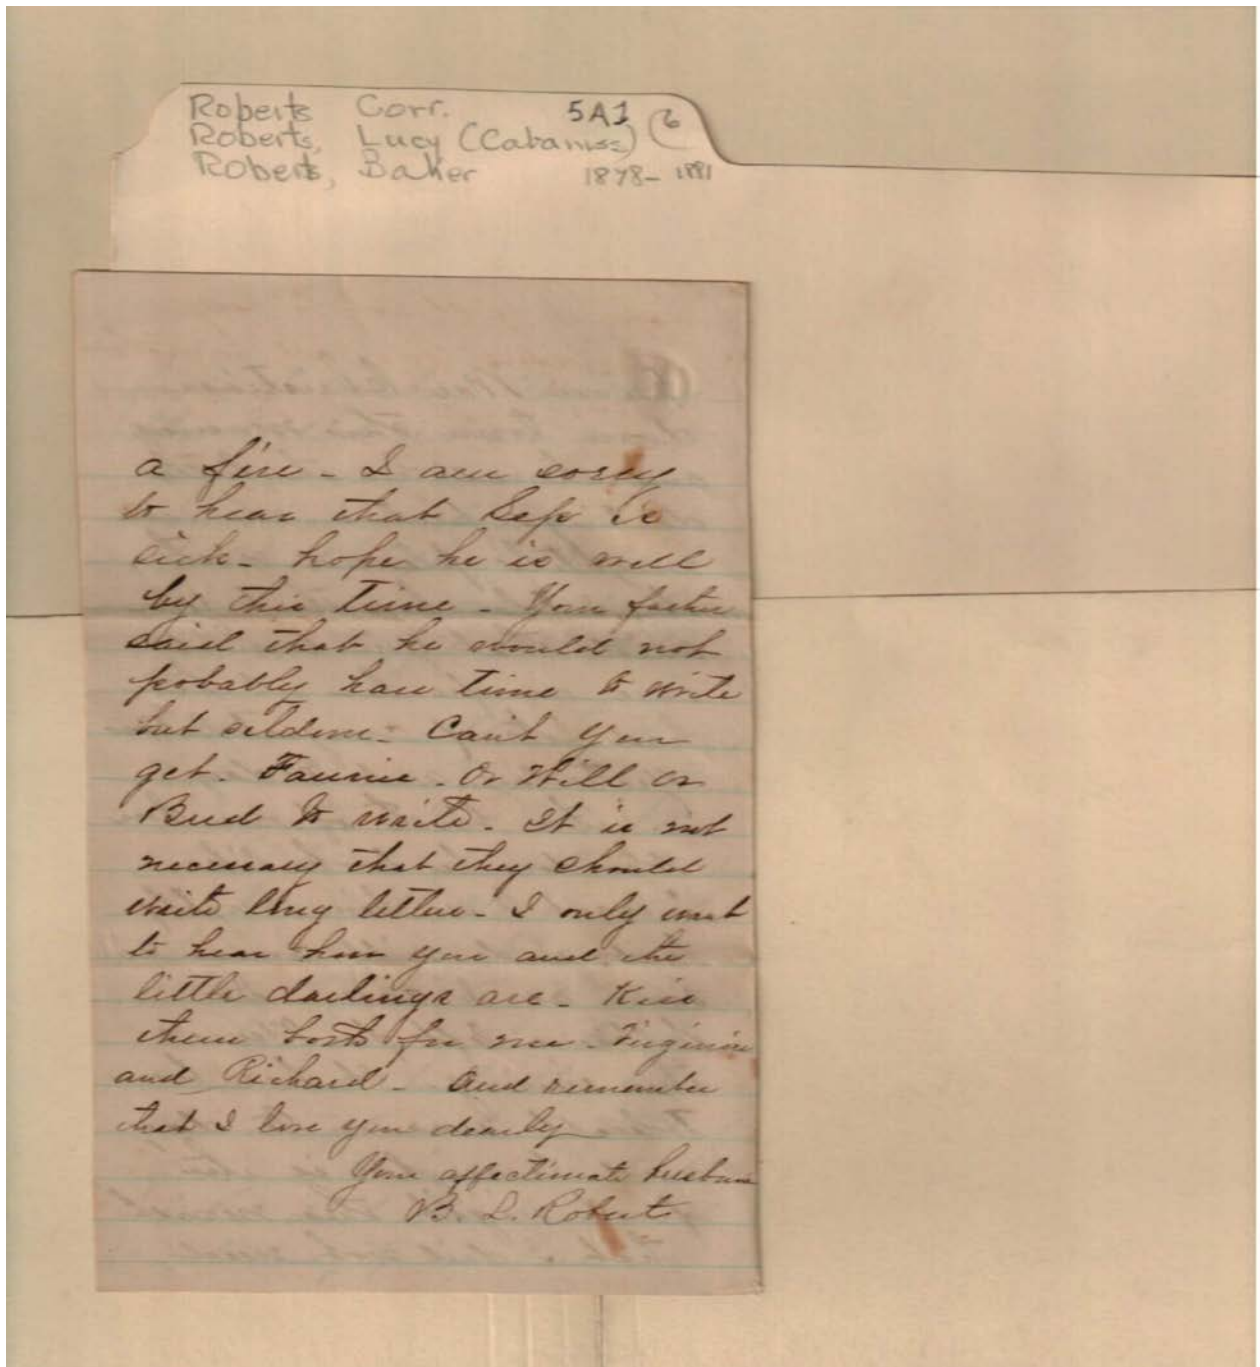 Roberts Corr. 5A1 6
Roberts, Lucy (Cabaniss)
Roberts, Baker 1878-1881
a fire - I am sorry
to hear that Sep is
sick - hope he is well
by this time - Your father
said that he would not
probably have time to write
but seldom - Can't you
get - Fannie - Or Will or
Bud to write - It is not
necessary that they should
write long letters - I only want
to hear how you and the
little darlings are - Kiss
them both for me - Virginia
and Richard - And remember
that I love you dearly
Your affectionate husband
B. L. Roberts